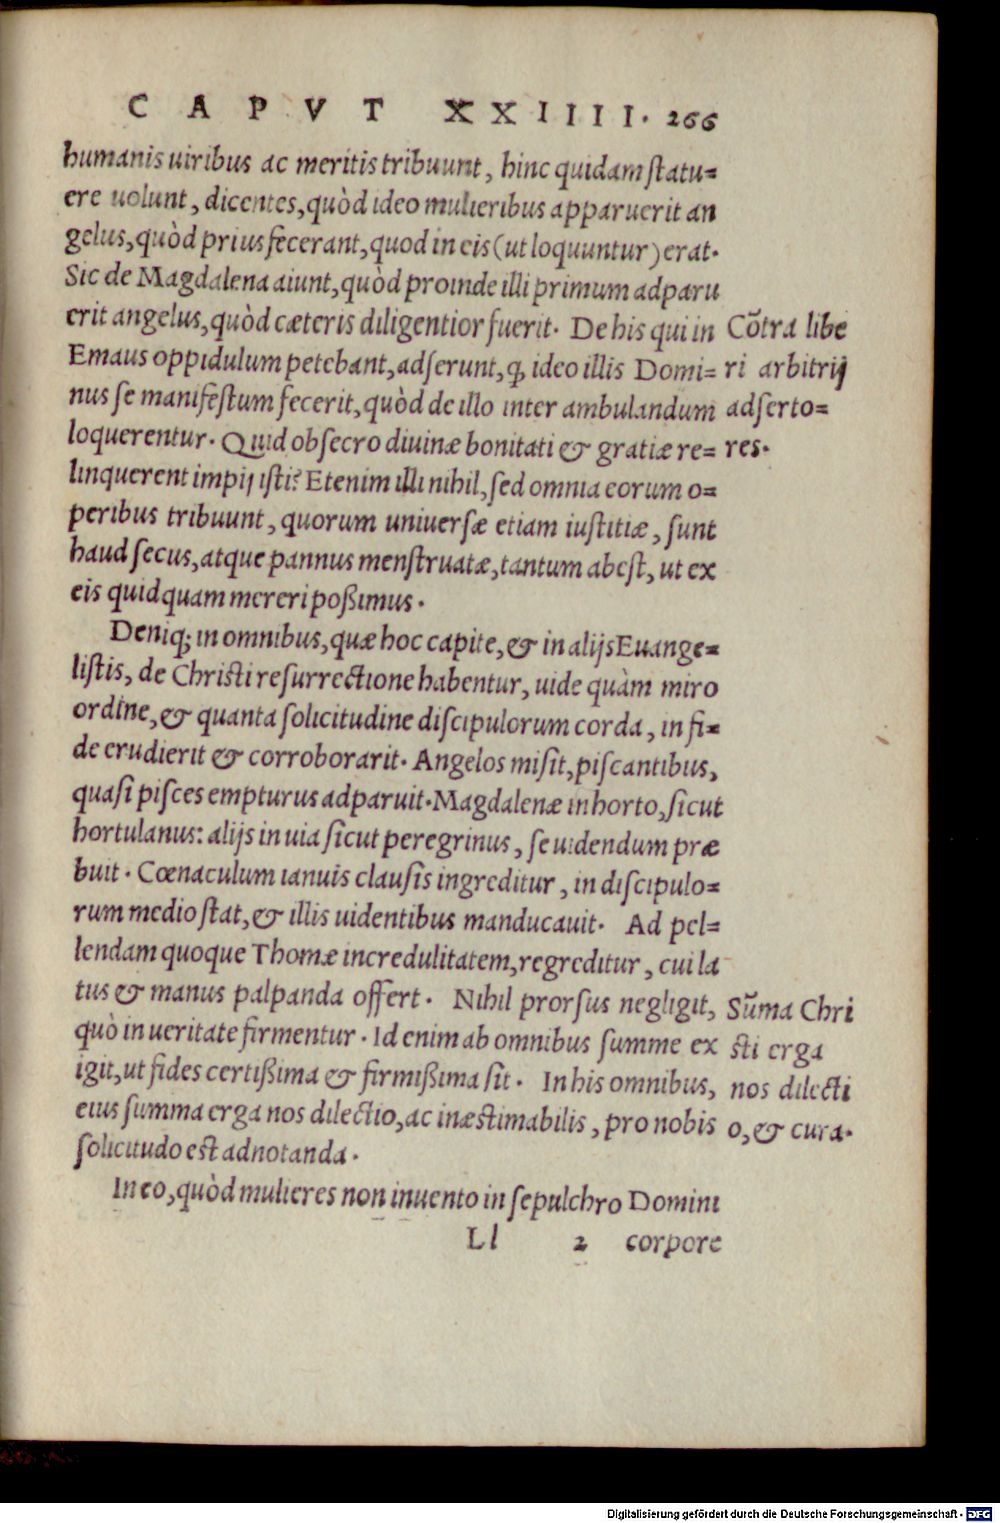 CAPVT XXIIII. 266
humanis uiribus ac meritis tribuunt, hinc quidam ſtatu=
ere uolunt, dicentes, quòd ideo mulieribus apparuerit an
gelus, quòd prius fecerant, quod in eis (ut loquuntur) erat.
Sic de Magdalena aiunt, quòd proinde illi primum adparu
erit angelus, quòd cæteris diligentior fuerit. De his qui in
Emaus oppidulum petebant, adſerunt, ꝙ ideo illis Domi=
nus ſe manifeſtum fecerit, quòd de illo inter ambulandum
loquerentur. Quid obſecro diuinæ bonitati & gratiæ re=
linquerent impij iſti? Etenim illi nihil, ſed omnia eorum o=
peribus tribuunt, quorum uniuerſæ etiam iuſtitiæ, ſunt
haud ſecus, atque pannus menſtruatæ, tantum abeſt, ut ex
eis quidquam mereri poßimus.
Cõtra libe
ri arbitrij
adſerto=
res.
Deniq; in omnibus, quæ hoc capite, & in alijs Euange=
liſtis, de Chriſti reſurrectione habentur, uide quàm miro
ordine, & quanta ſolicitudine diſcipulorum corda, in fi=
de erudierit & corroborarit. Angelos miſit, piſcantibus,
quaſi piſces empturus adparuit. Magdalenæ in horto, ſicut
hortulanus: alijs in uia ſicut peregrinus, ſe uidendum præ
buit. Cœnaculum ianuis clauſis ingreditur, in diſcipulo=
rum medio ſtat, & illis uidentibus manducauit. Ad pel=
lendam quoque Thomæ incredulitatem, regreditur, cui la
tus & manus palpanda offert. Nihil prorſus negligit,
quò in ueritate firmentur. Id enim ab omnibus ſumme ex
igit, ut fides certißima & firmißima ſit. In his omnibus,
eius ſumma erga nos dilectio, ac inæſtimabilis, pro nobis
ſolicitudo eſt adnotanda.
Sũma Chri
ſti erga
nos dilecti
o, & cura.
In eo, quòd mulieres non inuento in ſepulchro Domini
Ll 2 corpore
Digitalisierung gefördert durch die Deutsche Forschungsgemeinschaft - DFG